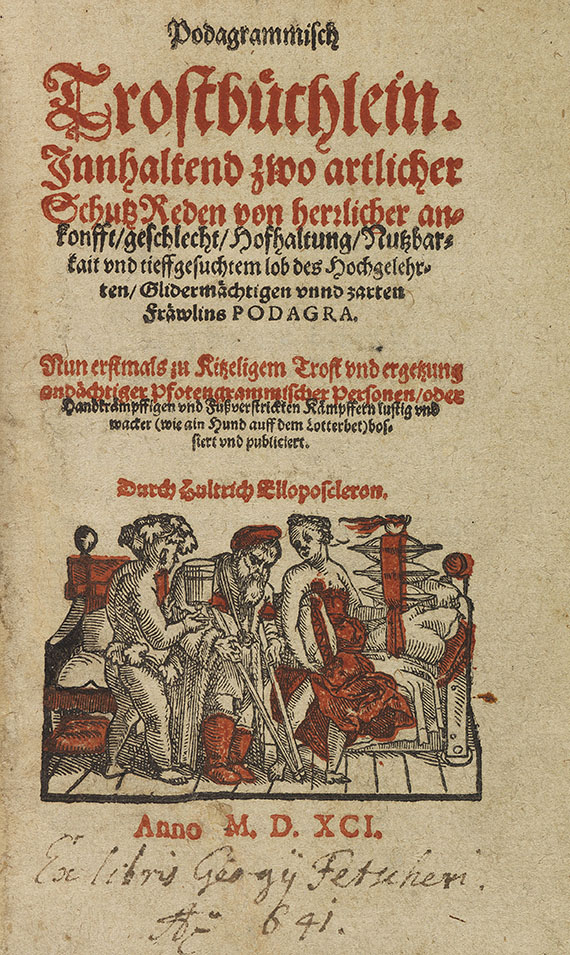 Podagrammisch
Trostbüchlein.
Innhaltend zwo artlicher
SchutzReden von herrlicher an⸗
konfft/geschlecht/Hofhaltung/Nutzbar⸗
kait vnd tieffgesuchtem lob des Hochgelehr⸗
ten/Glidermächtigen vnnd zarten
Fräwlins PODAGRA.
Nun erstmals zu Kitzeligem Trost vnd ergetzung
andächtiger Pfotengrammischer Personen/oder
Handkrämpffigen vnd Fußverstrickten Kämpffern lustig vnd
wacker (wie ain Hund auff dem Lotterbet) bos⸗
siert vnd publiciert.
Durch Hultrich Elloposcleron.
Anno M. D. XCI.
Ex libris Georgÿ Fetscheri.
Aō 641.